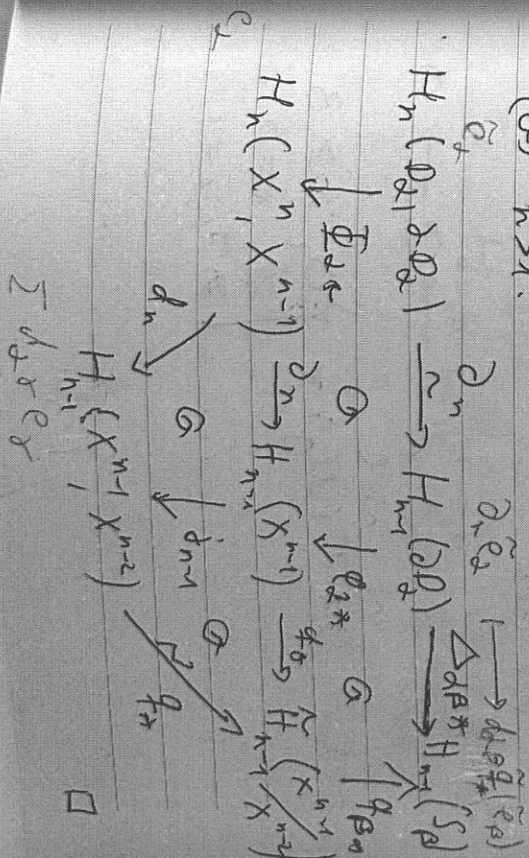 n>1.
ẽ_α ∂_n ẽ_α ⟼ d_{αβ} q̃_*(ẽ_β)
H_n(D_α, ∂D_α) →^{∂_n}_~ H_{n-1}(∂D_α) →^{Δ_{αβ*}} H_{n-1}(S_β)
↓ Φ_{α*} G ↓ φ_{α*} G ↑ q_{β*}
H_n(X^n, X^{n-1}) →^{∂_n} H_{n-1}(X^{n-1}) →^{q_*} H̃_{n-1}(X^{n-1}/X^{n-2})
e_α d_n ↘ G ↓ j_{n-1} G ↗ q_*
H_{n-1}(X^{n-1}, X^{n-2})
Σ d_{αβ} e_β □